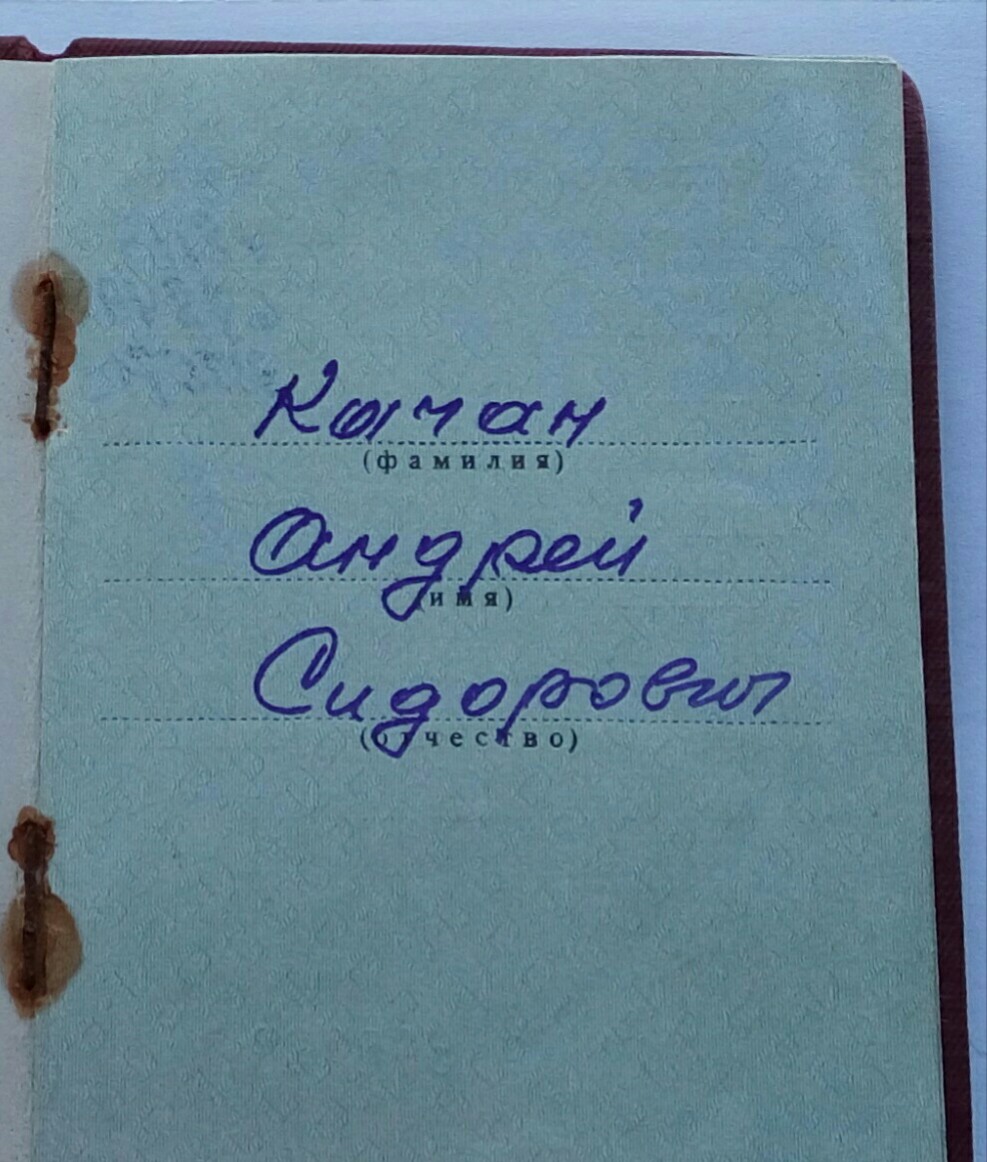 Качан
(фамилия)
Андрей
(имя)
Сидорович
(отчество)